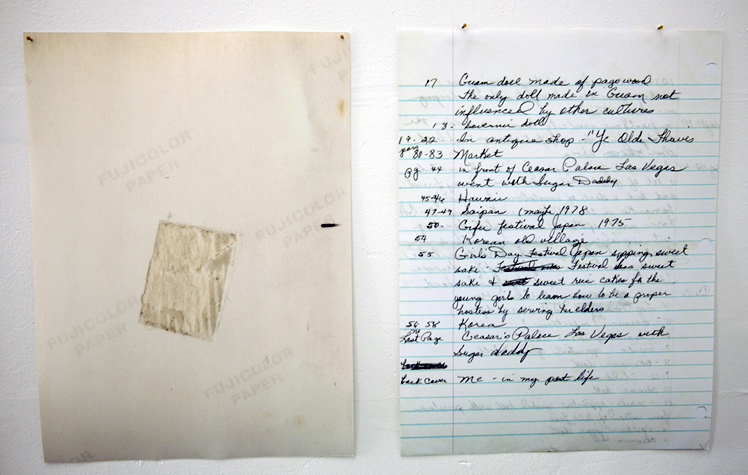 FUJICOLOR PAPER
FUJICOLOR
PAPER
FUJICOLOR
PAPER
FUJICOLOR
PAPER
FUJICOLOR
PAPER
17 Guam doll made of pagowood
The only doll made in Guam not
influenced by other cultures
18 - Souvenir doll
19-22 In antique shop - "Ye Olde Thieves
80-83 Market
pg 44 in front of Ceasar Palace Las Vegas
went with Sugar Daddy
45-46 Hawaii
47-49 Saipan 1978
50- Gifu festival Japan 1975
54 Korean old village
55 Girl's Day Festival Japan sipping sweet
saki Festival has sweet
saki & sweet rice cakes for the
young girls to learn how to be a proper
hostess by serving her elders
56-58 Korea
Last Page Ceasar's Palace Las Vegas with
Sugar daddy
back cover Me - in my past life